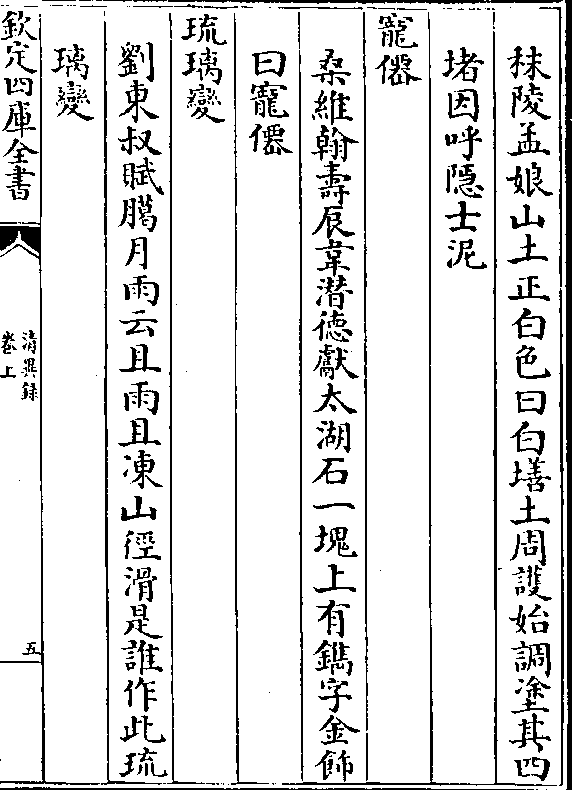 秣陵孟娘山土正白色曰白墡土周護始調塗其四
堵因呼隠士泥
寵僊
桑維翰壽辰韋潜徳獻太湖石一塊上有鐫字金飾
曰寵僊
琉璃變
劉東叔賦臈月雨云且雨且凍山徑滑是誰作此琉
璃變
欽定四庫全書
清異録
卷上
五